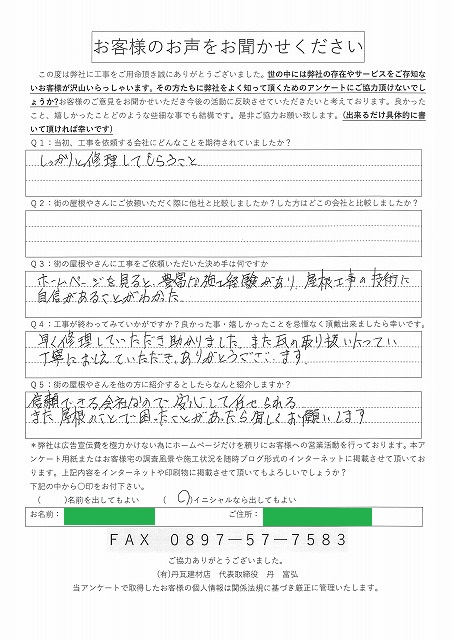 お客様のお声をお聞かせください
この度は弊社に工事をご用命頂き誠にありがとうございました。世の中には弊社の存在やサービスをご存知な
いお客様が沢山いらっしゃいます。その方たちに弊社をよく知って頂くためのアンケートにご協力頂けないでし
ょうか?お客様のご意見をお聞かせいただき今後の活動に反映させていただきたいと考えております。良かった
こと、嬉しかったことどのような些細な事でも結構です。是非ご協力お願い致します。(出来るだけ具体的に書
いて頂ければ幸いです)
Q1:当初、工事を依頼する会社にどんなことを期待されていましたか?
しっかりと修理してもらうこと
Q2:街の屋根やさんにご依頼いただく際に他社と比較しましたか?した方はどこの会社と比較しましたか?
Q3:街の屋根やさんに工事をご依頼いただいた決め手は何ですか
ホームページを見ると、豊富な施工経験があり、屋根工事の技術に
自信があることがわかった
Q4:工事が終わってみていかがですか?良かった事・嬉しかったことを忌憚なく頂戴出来ましたら幸いです。
早く修理していただき助かりました。また瓦の取り扱いについ
丁寧におしえていただき、ありがとうございます。
Q5:街の屋根やさんを他の方に紹介するとしたらなんと紹介しますか?
信頼できる会社なので安心して任せられる
また屋根のことで困ったことがあったら宜しくお願いします
*弊社は広告宣伝費を極力かけない為にホームページだけを頼りにお客様への営業活動を行っております。本ア
ンケート用紙またはお客様宅の調査風景や施工状況を随時ブログ形式のインターネットに掲載させて頂いてお
ります。上記内容をインターネットや印刷物に掲載させて頂いてもよろしいでしょうか?
下記の中から〇印をお付下さい。
( )名前を出してもよい (〇)イニシャルなら出してもよい
お名前: ご住所:
FAX 0897-57-7583
ご協力ありがとうございました。
(有)丹瓦建材店 代表取締役 丹 富弘
当アンケートで取得したお客様の個人情報は関係法規に基づき厳正に管理いたします。